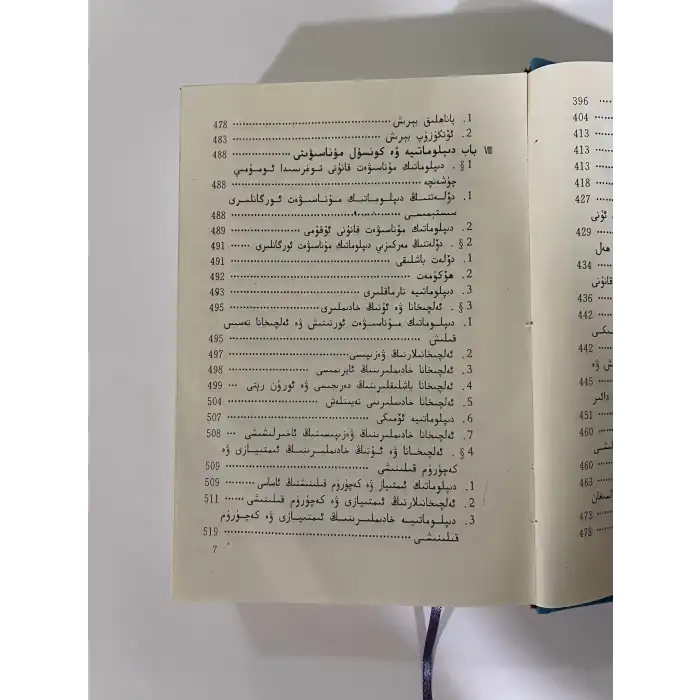 1. پاناھلىق بېرىش ........................ 478
2. ئۆتكۈزۈپ بېرىش ........................ 483
Ⅷ باب دىپلوماتىيە ۋە كونسۇل مۇناسىۋىتى ........................ 488
1 §. دىپلوماتىك مۇناسىۋەت قانۇنى توغرىسىدا ئومۇمىي
چۈشەنچە ........................ 488
1. دۆلەتنىڭ دىپلوماتىك مۇناسىۋەت ئورگانلىرى
سىستېمىسى ........................ 488
2. دىپلوماتىك مۇناسىۋەت قانۇنى ئۇقۇمى ........................ 489
2 §. دۆلەتنىڭ مەركىزىي دىپلوماتىك مۇناسىۋەت ئورگانلىرى ...... 491
1. دۆلەت باشلىقى ........................ 491
2. ھۆكۈمەت ........................ 492
3. دىپلوماتىيە تارماقلىرى ........................ 493
3 §. ئەلچىخانا ۋە ئۇنىڭ خادىملىرى ........................ 495
1. دىپلوماتىك مۇناسىۋەت ئورنىتىش ۋە ئەلچىخانا تەسىس
قىلىش ........................ 495
2. ئەلچىخانىلارنىڭ ۋەزىپىسى ........................ 497
3. ئەلچىخانا خادىملىرىنىڭ ئايرىمىسى ........................ 498
4. ئەلچىخانا باشلىقلىرىنىڭ دەرىجىسى ۋە ئورۇن رېتى ... 499
5. ئەلچىخانا خادىملىرىنى تەيىنلەش ........................ 504
6. دىپلوماتىيە ئۆمىكى ........................ 507
7. ئەلچىخانا خادىملىرىنىڭ ۋەزىپىسىنىڭ ئاخىرلىشىشى ... 508
4 §. ئەلچىخانا ۋە ئۇنىڭ خادىملىرىنىڭ ئىمتىيازى ۋە
كەچۈرۈم قىلىنىشى ........................ 509
1. دىپلوماتىك ئىمتىياز ۋە كەچۈرۈم قىلىنىشنىڭ ئاساسى ......... 509
2. ئەلچىخانىلارنىڭ ئىمتىيازى ۋە كەچۈرۈم قىلىنىشى ...... 511
3. دىپلوماتىيە خادىملىرىنىڭ ئىمتىيازى ۋە كەچۈرۈم
قىلىنىشى ........................ 519
7
396
404
413
413
413
418
427
ئۈنى
429
ھەل
434
قانۇنى
436
442
442
ش ۋە
445
دائىر
451
460
460
463
473
478